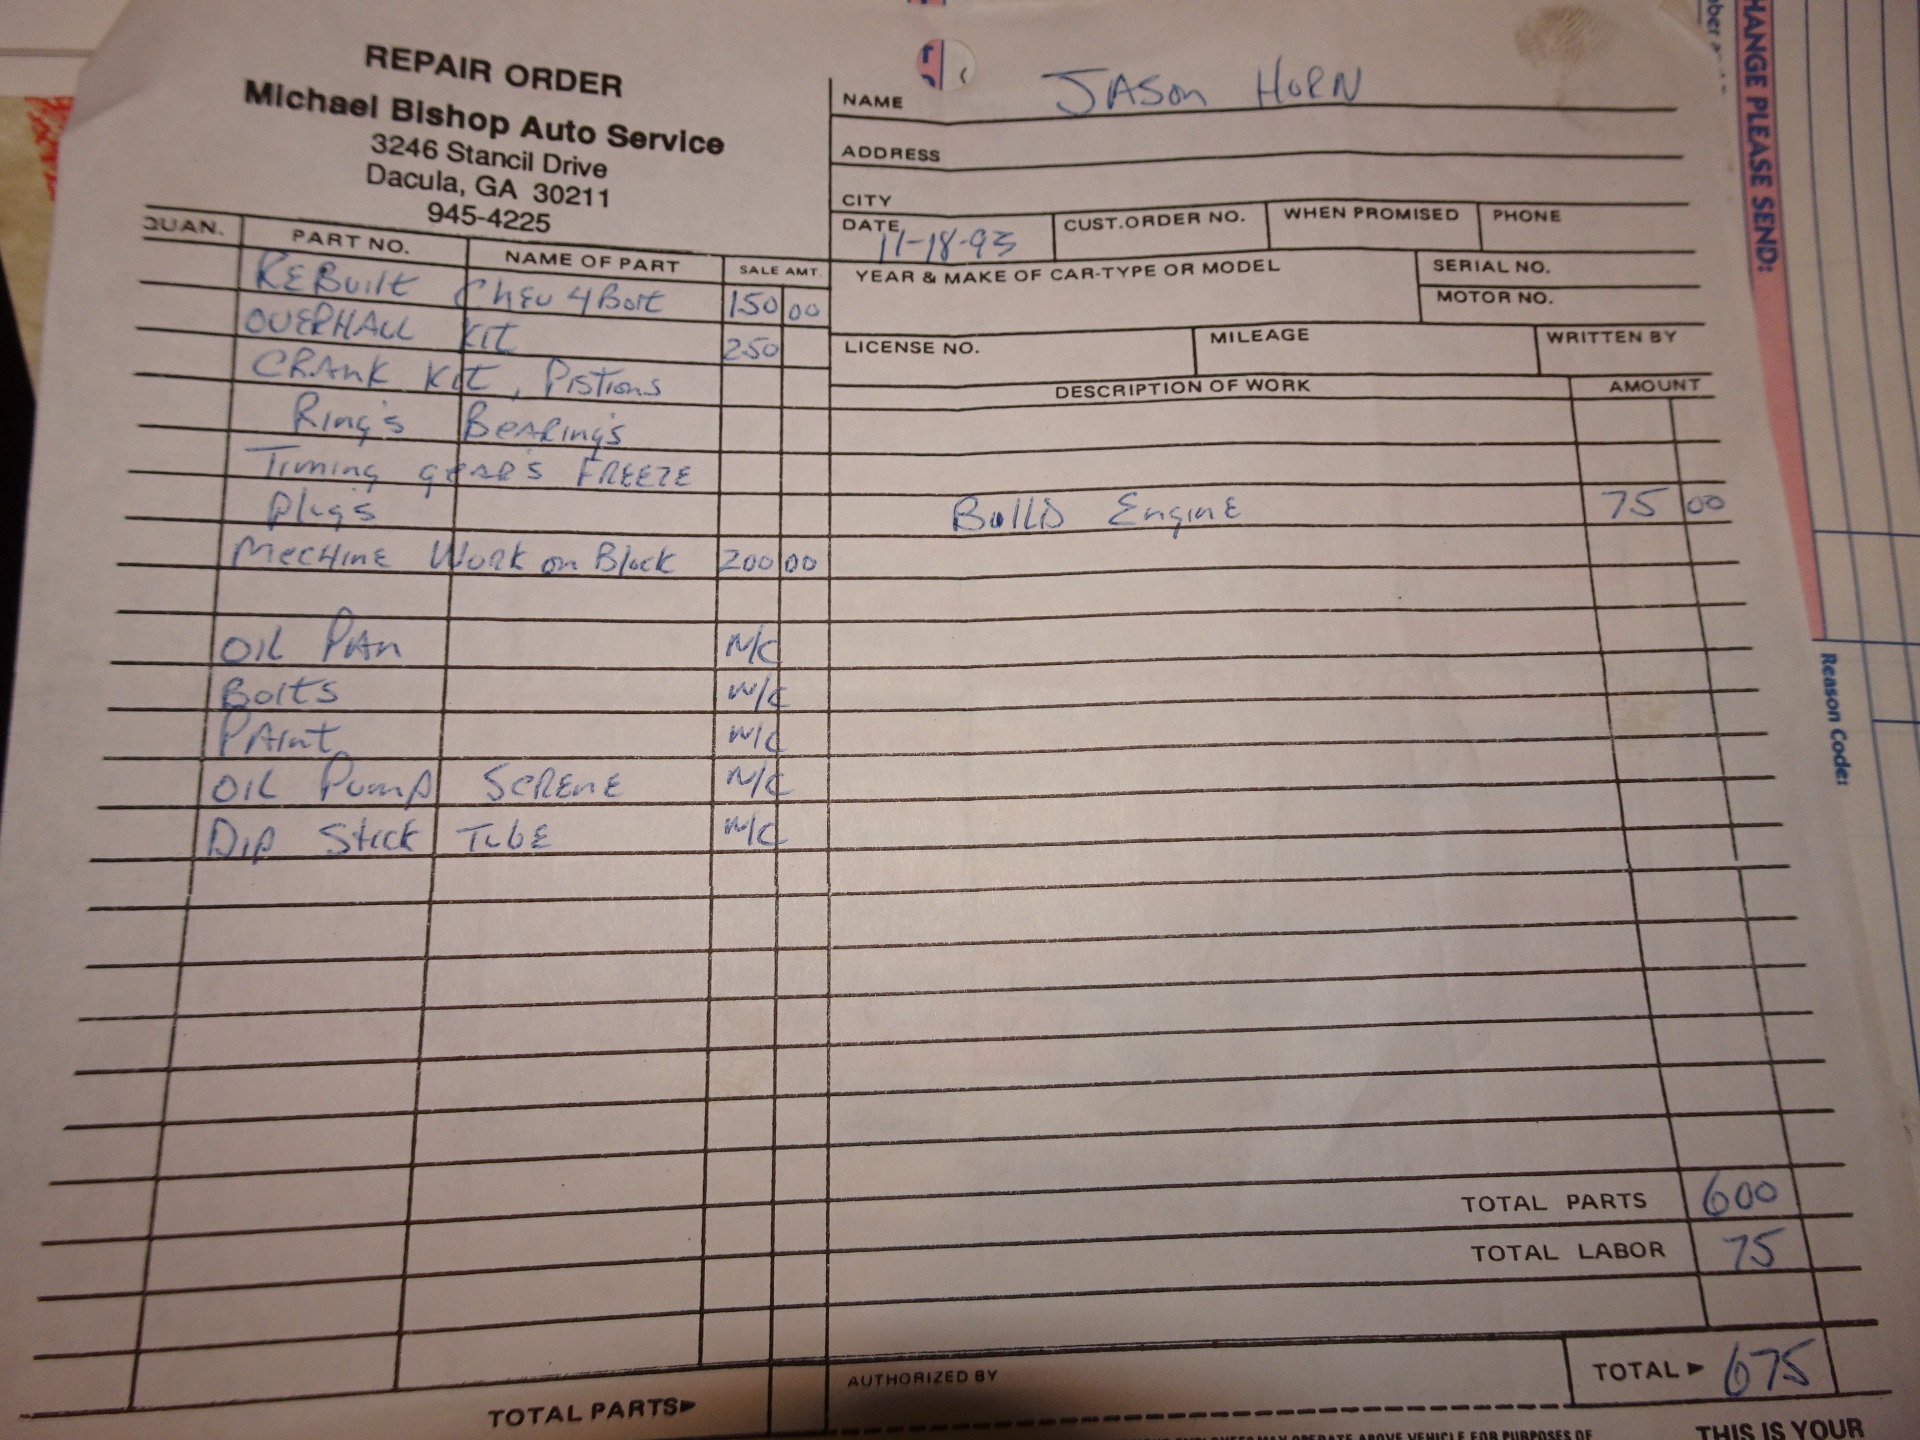 REPAIR ORDER
Michael Bishop Auto Service
3246 Stancil Drive
Dacula, GA 30211
945-4225
NAME JASon HORN
ADDRESS
CITY
DATE 11-18-93 CUST.ORDER NO. WHEN PROMISED PHONE
YEAR & MAKE OF CAR-TYPE OR MODEL SERIAL NO.
MOTOR NO.
LICENSE NO. MILEAGE WRITTEN BY
DESCRIPTION OF WORK AMOUNT
QUAN. PART NO. NAME OF PART SALE AMT.
REBuilt Chev 4 Bolt 150 00
OVERHALL KIT 250
CRAnK KIT, PISTIONS
Ring's BEARing's
Timing gEAR'S FREEZE
Plug's
MECHINE WORK on Block 200 00
OIL PAn N/C
Bolts N/C
PAInt N/C
OIL Pump SCREnE N/C
Dip Stick TubE N/C
BuilD EnginE 75 00
TOTAL PARTS 600
TOTAL LABOR 75
TOTAL 675
AUTHORIZED BY
TOTAL PARTS
MAY OPERATE ABOVE VEHICLE FOR PURPOSES OF
THIS IS YOUR
HANGE PLEASE SEND:
Reason Code: